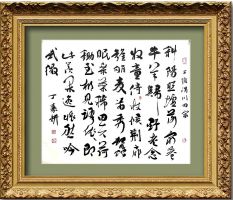 王維渭川田家
斜陽照墟落窮巷
牛羊歸野老念
牧童倚杖候荊扉
雉雊麥苗秀蠶
眠桑葉稀田夫荷
鋤至相見語依依即
此羨閒逸悵然吟
式微